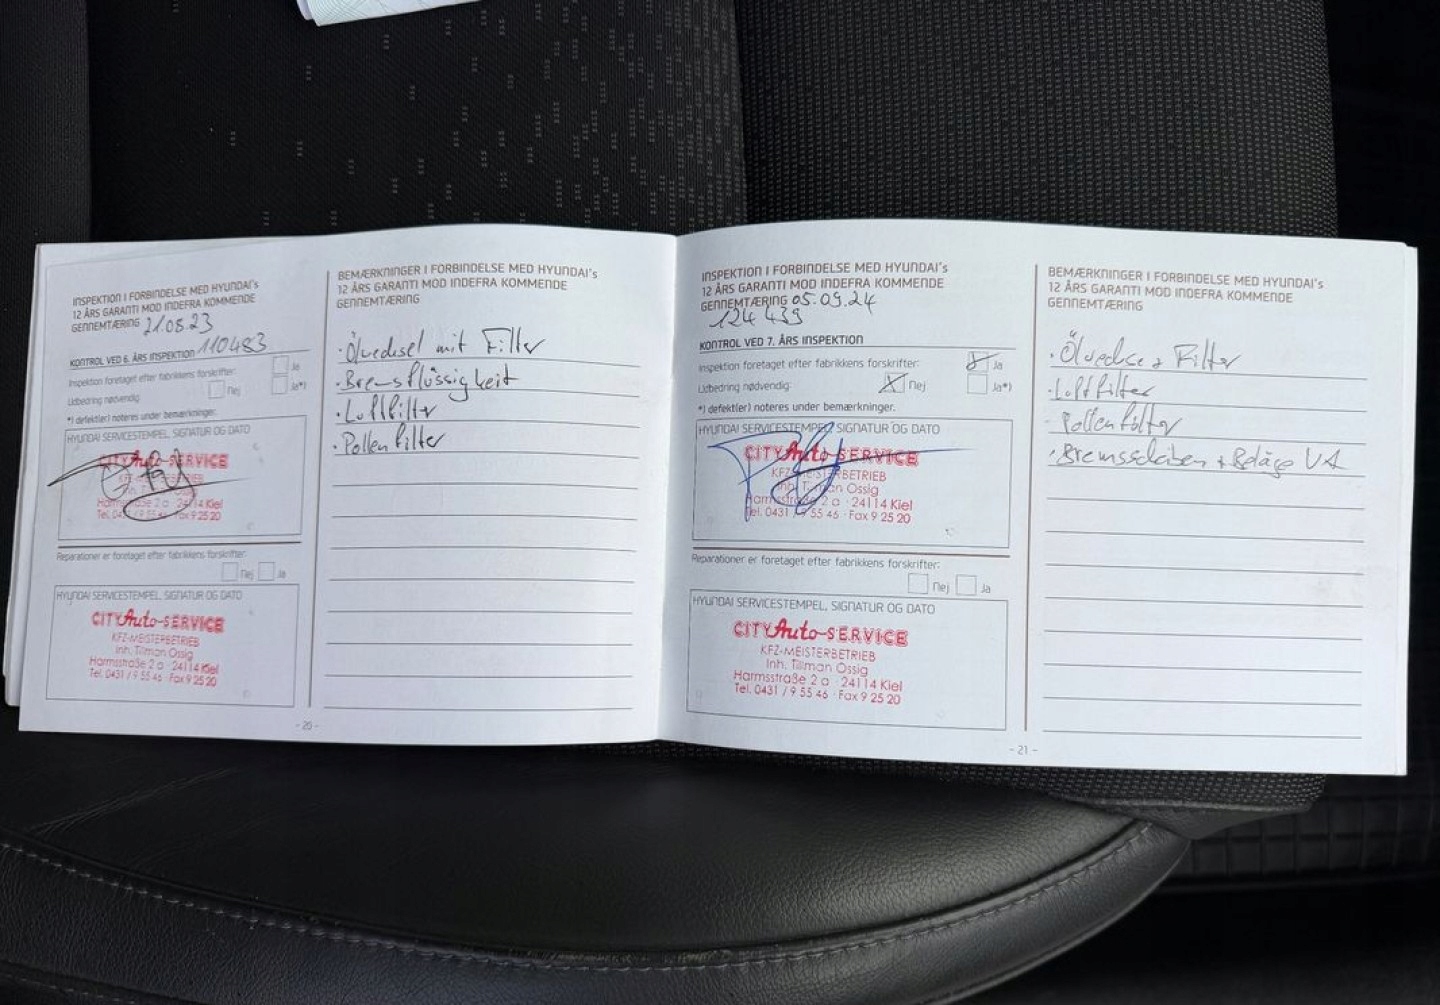 INSPEKTION I FORBINDELSE MED HYUNDAI's
12 ÅRS GARANTI MOD INDEFRA KOMMENDE
GENNEMTÆRING 21.08.23
KONTROL VED 6. ÅRS INSPEKTION 110483
Inspektion foretaget efter fabrikkens forskrifter: Ja
Udbedring nødvendig: Nej Ja*)
*) defekt(er) noteres under bemærkninger.
HYUNDAI SERVICESTEMPEL, SIGNATUR OG DATO
CITY Auto-SERVICE
Harmsstraße 2 a · 24114 Kiel
Tel. 0431 / 9 55 46 · Fax 9 25 20
Reparationer er foretaget efter fabrikkens forskrifter:
Nej Ja
HYUNDAI SERVICESTEMPEL, SIGNATUR OG DATO
CITY Auto-SERVICE
KFZ-MEISTERBETRIEB
Inh. Tillman Ossig
Harmsstraße 2 a · 24114 Kiel
Tel. 0431 / 9 55 46 · Fax 9 25 20
BEMÆRKNINGER I FORBINDELSE MED HYUNDAI's
12 ÅRS GARANTI MOD INDEFRA KOMMENDE
GENNEMTÆRING
· Ölwechsel mit Filter
· Bremsflüssigkeit
· Luftfilter
· Pollenfilter
- 20 -
INSPEKTION I FORBINDELSE MED HYUNDAI's
12 ÅRS GARANTI MOD INDEFRA KOMMENDE
GENNEMTÆRING 05.09.24
124 439
KONTROL VED 7. ÅRS INSPEKTION
Inspektion foretaget efter fabrikkens forskrifter: Ja
Udbedring nødvendig: Nej Ja*)
*) defekt(er) noteres under bemærkninger.
HYUNDAI SERVICESTEMPEL, SIGNATUR OG DATO
CITY Auto-SERVICE
KFZ-MEISTERBETRIEB
Inh. Tillman Ossig
Harmsstraße 2 a · 24114 Kiel
Tel. 0431 / 9 55 46 · Fax 9 25 20
Reparationer er foretaget efter fabrikkens forskrifter:
Nej Ja
HYUNDAI SERVICESTEMPEL, SIGNATUR OG DATO
CITY Auto-SERVICE
KFZ-MEISTERBETRIEB
Inh. Tillman Ossig
Harmsstraße 2 a · 24114 Kiel
Tel. 0431 / 9 55 46 · Fax 9 25 20
BEMÆRKNINGER I FORBINDELSE MED HYUNDAI's
12 ÅRS GARANTI MOD INDEFRA KOMMENDE
GENNEMTÆRING
· Ölwechse + Filter
· Luftfilter
· Pollenfilter
· Bremsscheiben + Beläge VA
- 21 -